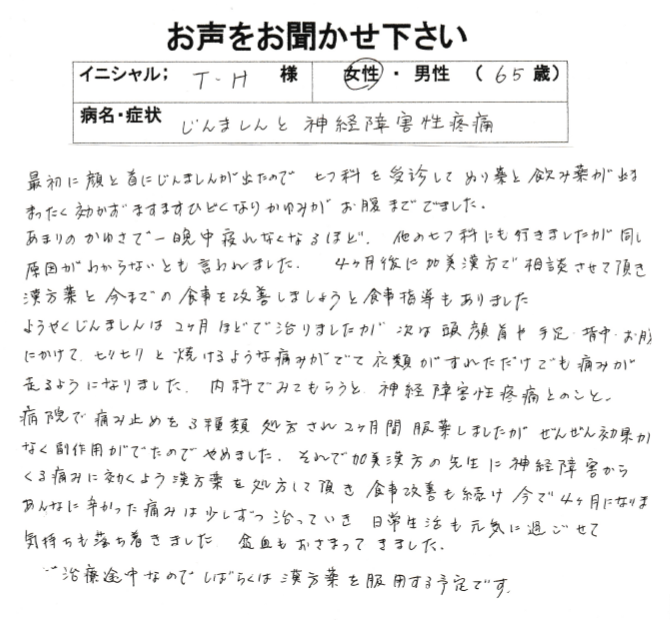 お声をお聞かせ下さい
イニシャル； T・H 様 女性・男性 （ 65 歳）
病名・症状 じんましんと神経障害性疼痛
最初に顔と首にじんましんが出たので ヒフ科を受診して ぬり薬と飲み薬が出ま
まったく効かずますますひどくなりかゆみが お腹まででました。
あまりのかゆさで一晩中寝れなくなるほど、他のヒフ科にも行きましたが同じ
原因がわからないとも言われました。 4ヶ月後に加美漢方で相談させて頂き
漢方薬と今までの食事を改善しましょうと食事指導もありました
ようやくじんましんは2ヶ月ほどで治りましたが 次は頭顔首や手足・背中・お腹
にかけて、ヒリヒリと焼けるような痛みがでて衣類がすれただけでも痛みが
走るようになりました。 内科でみてもらうと、神経障害性疼痛とのこと。
病院で痛み止めを3種類 処方され2ヶ月間 服薬しましたが ぜんぜん効果が
なく副作用がでたのでやめました。それで加美漢方の先生に神経障害から
くる痛みに効くよう漢方薬を処方して頂き 食事改善も続け 今で4ヶ月になりま
あんなに辛かった痛みは少しずつ治っていき 日常生活も元気に過ごせて
気持ちも落ち着きました 貧血もおさまってきました。
治療途中なのでしばらくは漢方薬を服用する予定です。